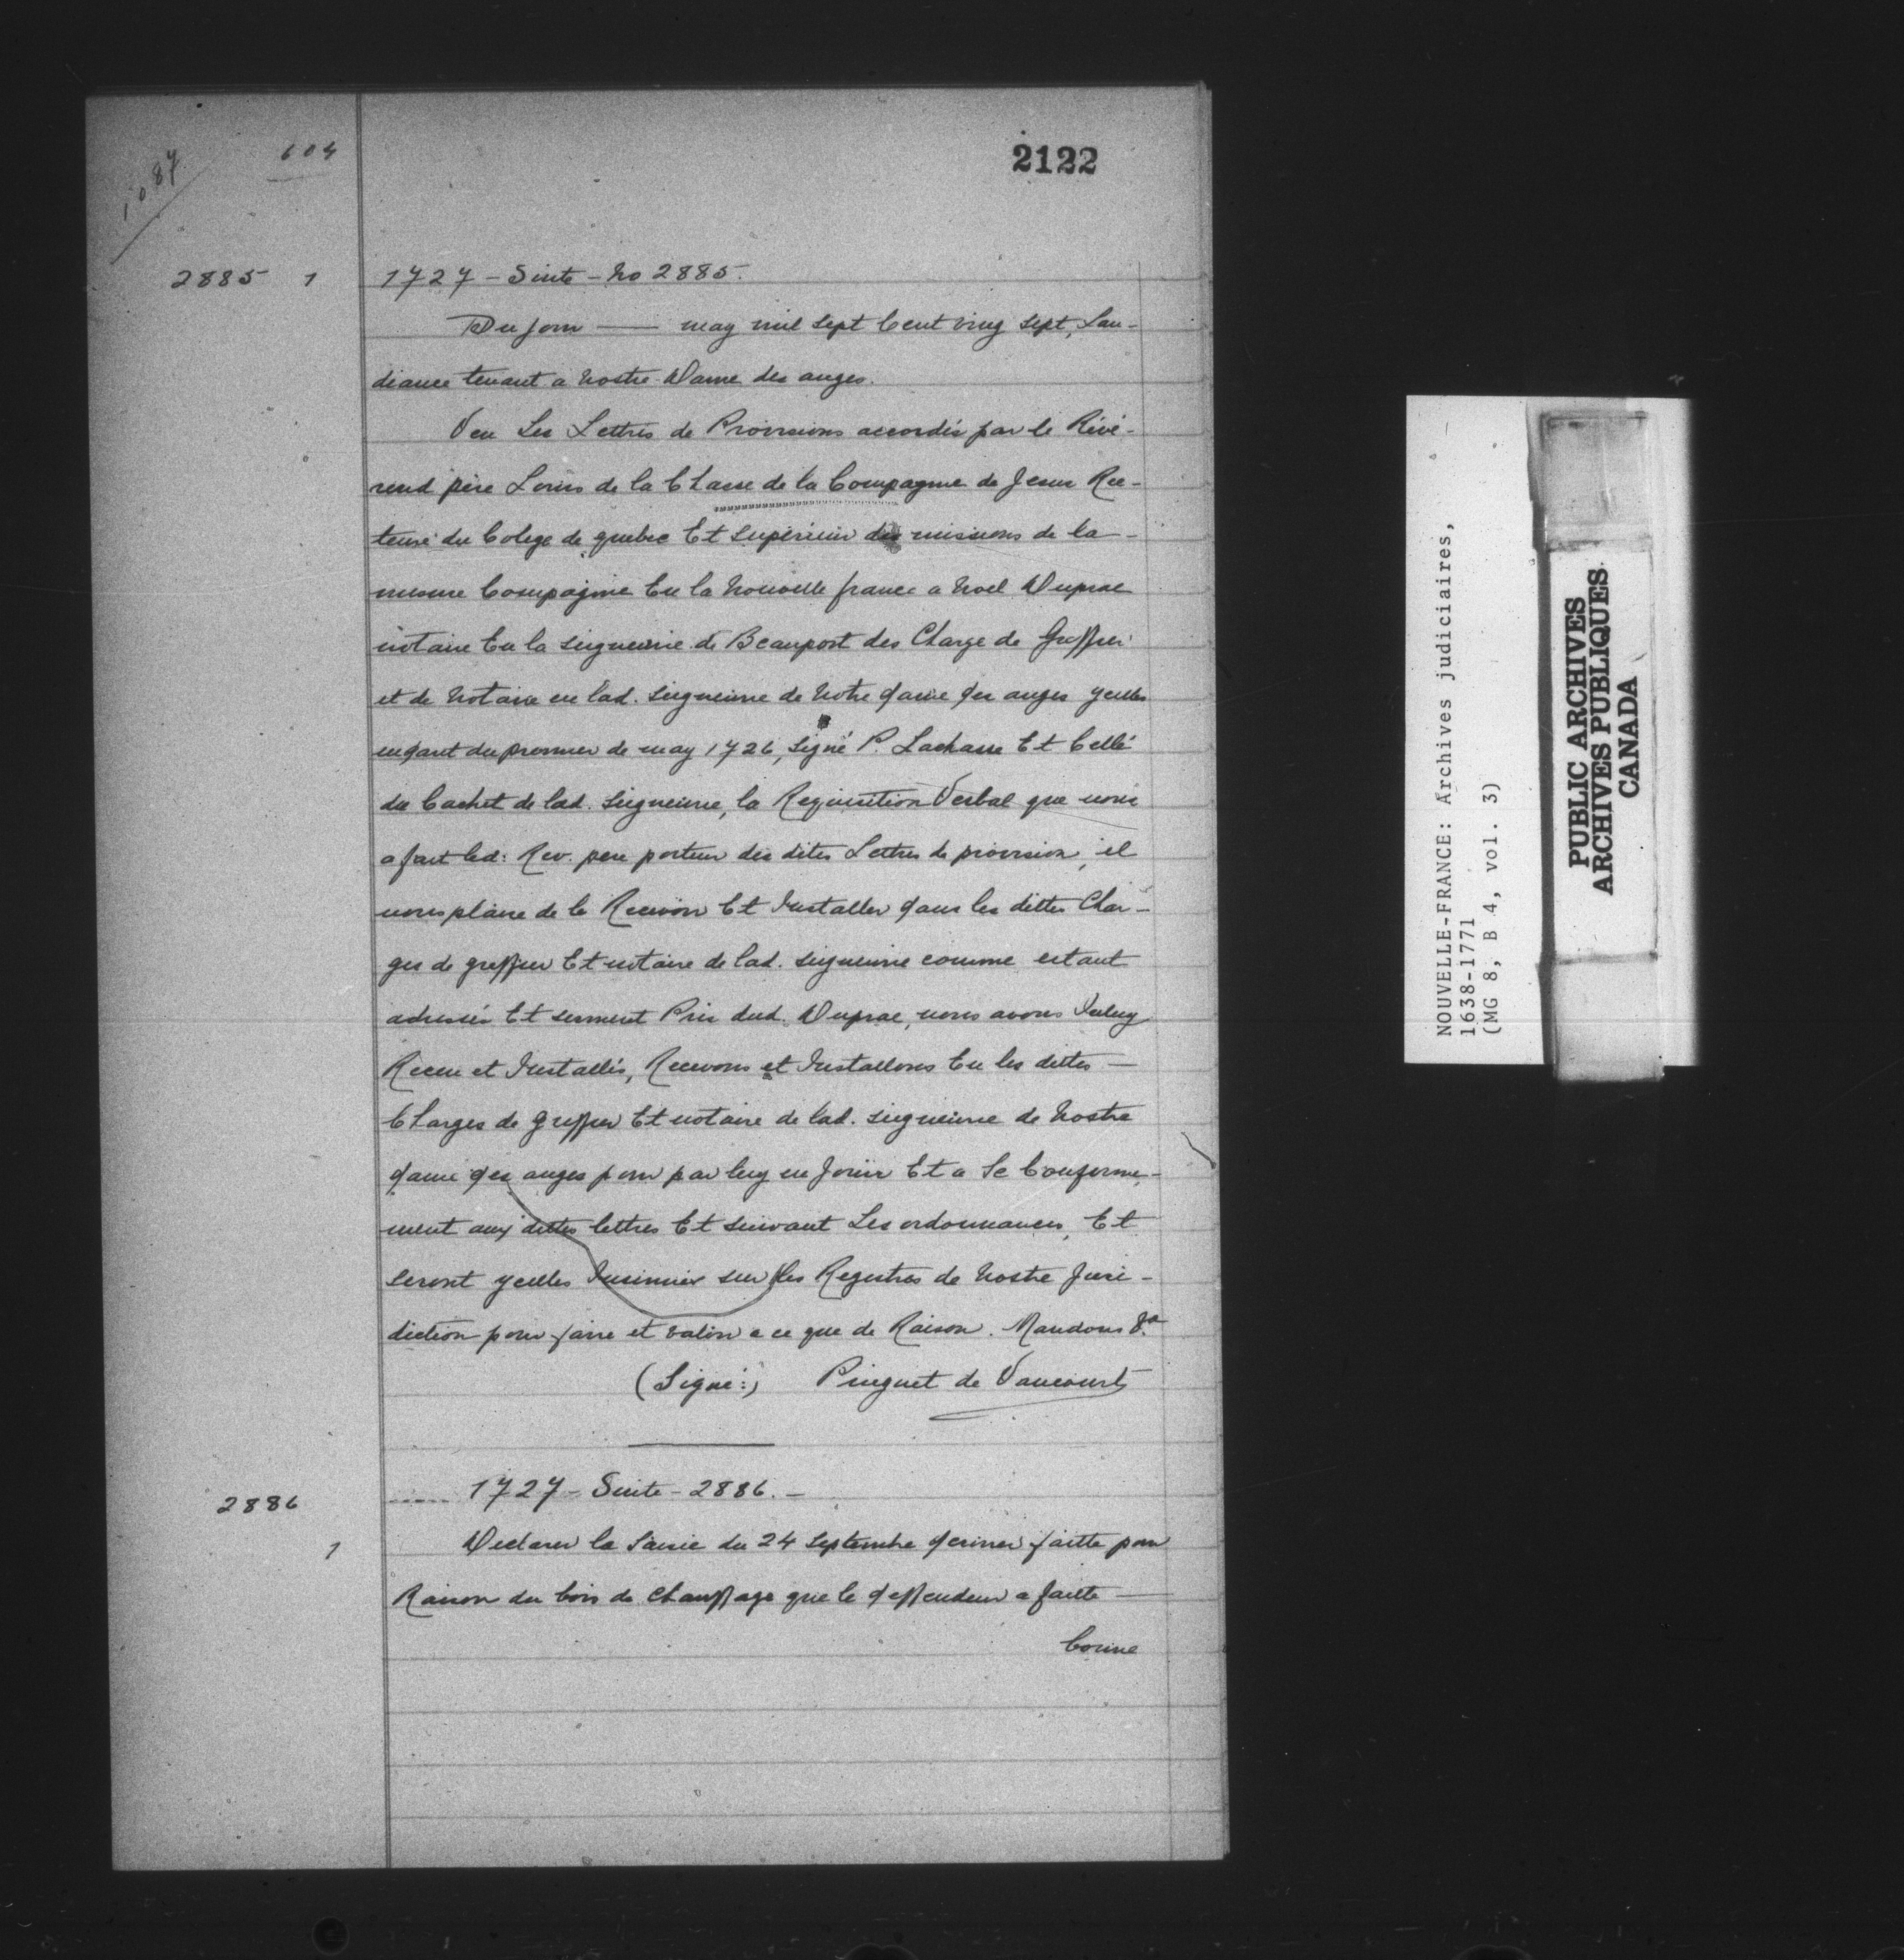 1087
604
2122
2885 1 1727 - Suite - No 2885.
Du Jour —— may mil sept Cent ving sept, Lau-
diance tenant a Nostre Dame des anges.
Veu Les Lettres de Provisions accordés par le Révé-
rend père Louis de la Chasse de la Compagnie de Jesus Rec-
teure du Colege de quebec Et supérieur des missions de la -
mesme Compagnie En la Nouvelle france a Noel Duprac
notaire En la seigneurie de Beauport des Charge de Greffier
et de Notaire en lad. seigneurie de Notre dame des anges ycelles
en dant du premier de may 1726, Signé P. Lachasse Et Cellé
du Cachet de lad. seigneurie, la Requisition Verbal que nous
a fait led: Rev. pere porteur des dites Lettres de provision, il
nous plaire de le Recevoir Et Installer dans les dittes Char-
ges de greffier Et notaire de lad. seigneurie comme estant
adressés Et serment Pris dud. Duprac, nous avons Iceluy
Receu et Installés, Recevons et Installons En les dittes —
Charges de Greffier Et notaire de lad. seigneurie de Nostre
dame des anges pour par luy en Jouir Et a Se Conforme-
ment aux dittes lettres Et suivant Les ordonnances, Et
seront ycelles Insinuier sur les Registres de Nostre Juri-
diction pour faire et valoir a ce que de Raison. Mandons &a
(Signé:) Pinguet de Vaucourt
2886 1727 - Suite - 2886. -
1 Declarer la Saisie du 24 septembre dernier faitte pour
Raison du bois de Chauffage que le deffendeur a faitte —
Comme
NOUVELLE-FRANCE: Archives judiciaires,
1638-1771
(MG 8, B 4, vol. 3)
PUBLIC ARCHIVES
ARCHIVES PUBLIQUES
CANADA